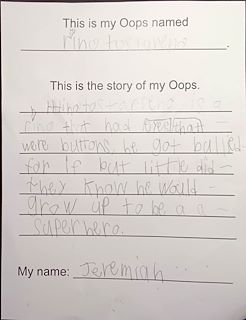 This is my Oops named
This is the story of my Oops.
is a
rino tht had eyes that
were buttons. he got bullied
for if but little did
they know he would
grow up to be a a
superhero.
My name: Jeremiah